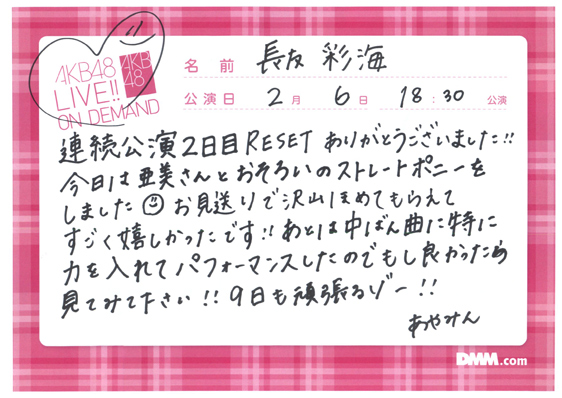 AKB48
LIVE!!
ON DEMAND
AKB
48
名前 長友 彩海
公演日 2月 6日 18:30 公演
連続公演2日目RESET ありがとうございました!!
今日は亜美さんとおそろいのストレートポニーを
しました お見送りで沢山ほめてもらえて
すごく嬉しかったです!! あとは中ばん曲に特に
力を入れてパフォーマンスしたのでもし良かったら
見てみて下さい!! 9日も頑張るゾー!!
あやみん
DMM.com